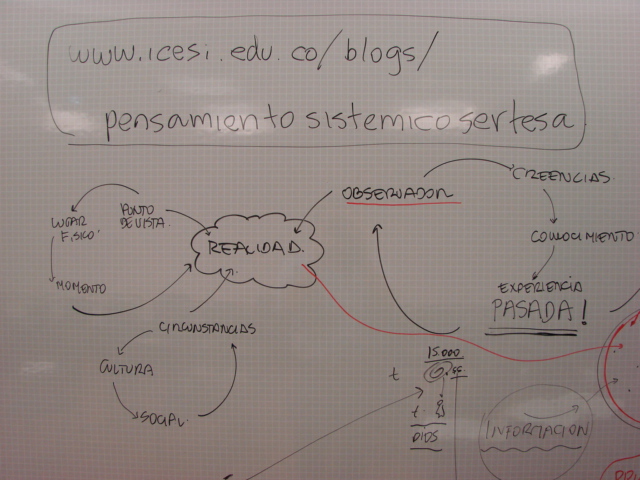 www.icesi.edu.co/blogs/
pensamientosistemicosertesa
OBSERVADOR
CREENCIAS
CONOCIMIENTO
EXPERIENCIA
PASADA!
PUNTO
DE VISTA.
LUGAR
FISICO.
MOMENTO
REALIDAD.
CIRCUNSTANCIAS
CULTURA
SOCIAL.
15.000
t
t.
INFORMACION